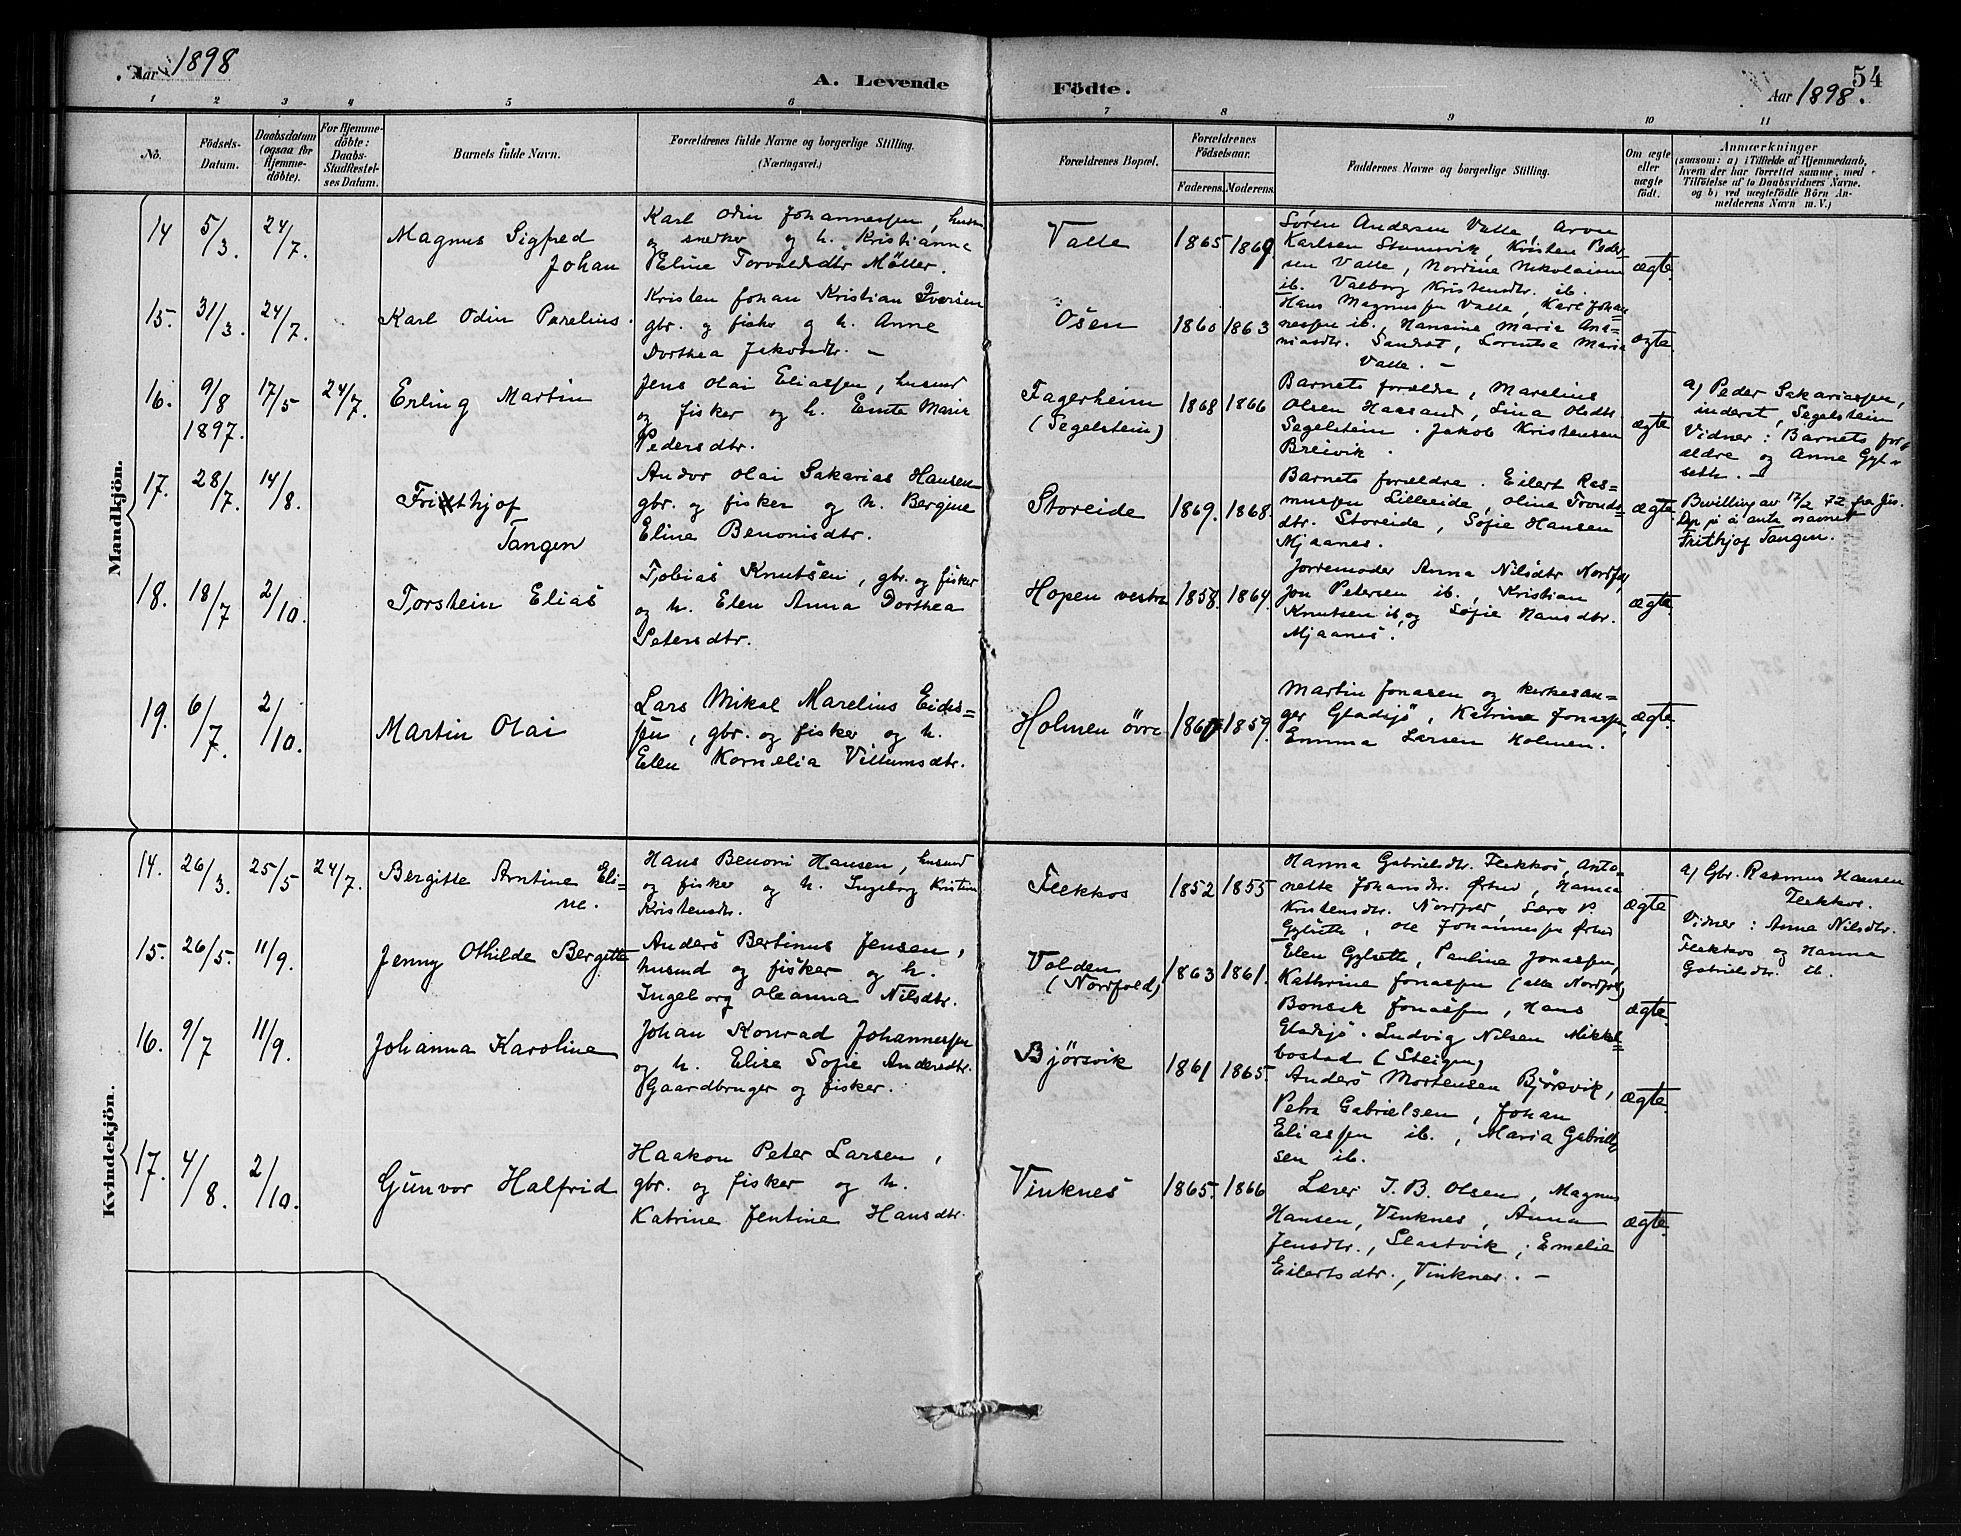 Aar 1898
A. Levende Födte.
54
Aar 1898.
1 2 3 4 5 6 7 8 9 10 11
No.
Födsels-Datum.
Daabsdatum (ogsaa for Hjemme-döbte).
For Hjemme-döbte: Daabs-Stadfæstel-ses Datum.
Barnets fulde Navn.
Forældrenes fulde Navne og borgerlige Stilling.
(Næringsvei.)
Forældrenes Bopæl.
Forældrenes Födselsaar.
Faderens. Moderens.
Faddernes Navne og borgerlige Stilling.
Om ægte eller uægte födt.
Anmærkninger
(saasom: a) i Tilfælde af Hjemmedaab,
hvem der har forrettet samme, med
Tilföielse af to Daabsvidners Navne,
og b) ved uægtefödte Börn An-
melderens Navn m. V.)
Mandkjön.
14 5/3. 24/7.
Magnus Sigfred
Johan
Karl Odin Johannessen, husm
og snedker og h. Kristianna
Eline Torvaldsdtr Møller.
Valle 1865 1869
Sören Andersen Valle, Arvn
Karlsen Stamsvik, Kristen Peder
sen Valle, Nordine Nikolaisen
ib. Valborg Kristensdtr. ib.
ægte.
15. 31/3. 24/7.
Karl Odin Parelius.
Kristen Johan Kristian Iversen
gbr. og fisker og h. Anne
Dorthea Jakobsdtr. –
Osen 1860 1863
Hans Magnussen Valle, Karl Johan
nessen ib., Hansine Maria Ana=
niasdtr. Sandset, Lorentsa Maria
Valle. –
ægte.
16. 9/8 1897. 17/5 24/7.
Erling Martin
Jens Olai Eliassen, husmd
og fisker og h. Ernte Marie
Pedersdtr.
Fagerheim
(Segelstein)
1868 1866
Barnets forældre, Marelius
Olsen Haasand, Lina Olsdtr
Segelstein. Jakob Kristensen
Breivik.
ægte
a) Peder Sakariassen,
inderst, Segelstein
Vidner: Barnets for-
ældre og Anne Gyl-
seth. –
17. 28/7. 14/8.
Frithjof
Tangen
Andor Olai Sakarias Hansen
gbr. og fisker og h. Bergine
Eline Benonisdtr.
Storeide 1869. 1868.
Barnets forældre. Eilert Ras-
mussen Lilleeide, Olina Tronds-
dtr. Storeide, Sofie Hansen
Mjaanes.
ægte.
Bevilling av 17/2 72 fra Jus.
Dep på å anta navnet
Frithjof Tangen.
18. 18/7 2/10.
Torstein Elias
Tobias Knutsen, gbr. og fisker
og h. Elen Anna Dorthea
Petersdtr.
Hopen vestre 1858. 1864.
Jorremoder Anna Nilsdtr Nordfold,
Jon Petersen ib., Kristian
Knutsen ib, og Sofie Hansdtr.
Mjaanes.
ægte.
19. 6/7 2/10.
Martin Olai
Lars Mikal Marelius Eides=
sen, gbr. og fisker og h.
Elen Kornelia Villumsdtr.
Holmen övre 1859.
Martin Jonasen og kirkesan=
ger Gladsjö, Katrine Jonassen,
Emma Larsen Holmen.
ægte.
Kvindekjön.
14. 26/3. 25/5 24/7.
Bergitte Arntine Eli-
ne.
Hans Benoni Hansen, husmd
og fisker og h. Ingeborg Kristine
Kristensdtr.
Flekkos 1852 1855
Hanna Gabrielsdtr. Flekkos, Anto-
nette Johansdtr. Ørbud, Hanna
Kristensdtr. Nordfold, Lærer P.
Gylseth, Ole Johannessen Ørbud
ægte
a) Gbr. Rasmus Hansen
Flekkos.
Vidner: Anna Nilsdtr.
Flekkos og Hanna
Gabrielsdtr. ib.
15. 26/5. 11/9.
Jenny Othilde Bergitte
Anders Bertinus Jensen,
husmd og fisker og h.
Ingeborg Oleanna Nilsdtr.
Volden
(Nordfold)
1863 1861.
Elen Gylseth, Pauline Jonassen,
Kathrine Jonassen (alle Nordfold)
Bonsak Jonassen, Hans
Gladsjö. Ludvig Nilsen Mikkel=
bostad (Steigen)
ægte.
16. 9/7 11/9.
Johanna Karoline
Johan Konrad Johannessen
og h. Elise Sofie Andersdtr.
Gaardbruger og fisker.
Bjørsvik 1861 1865.
Anders Mortensen Bjørsvik,
Petra Gabrielsen, Johan
Eliassen ib., Maria Gabriel-
sen ib.
ægte.
17. 4/8. 2/10.
Gunvor Halfrid
Haakon Peter Larsen,
gbr. og fisker og h.
Katrine Jentine Hansdtr.
Vinknes 1865. 1866
Lærer J. B. Olsen, Magnus
Hansen, Vinknes, Anna
Jensdtr., Slaatvik, Emelie
Eilertsdtr., Vinknes. –
ægte.